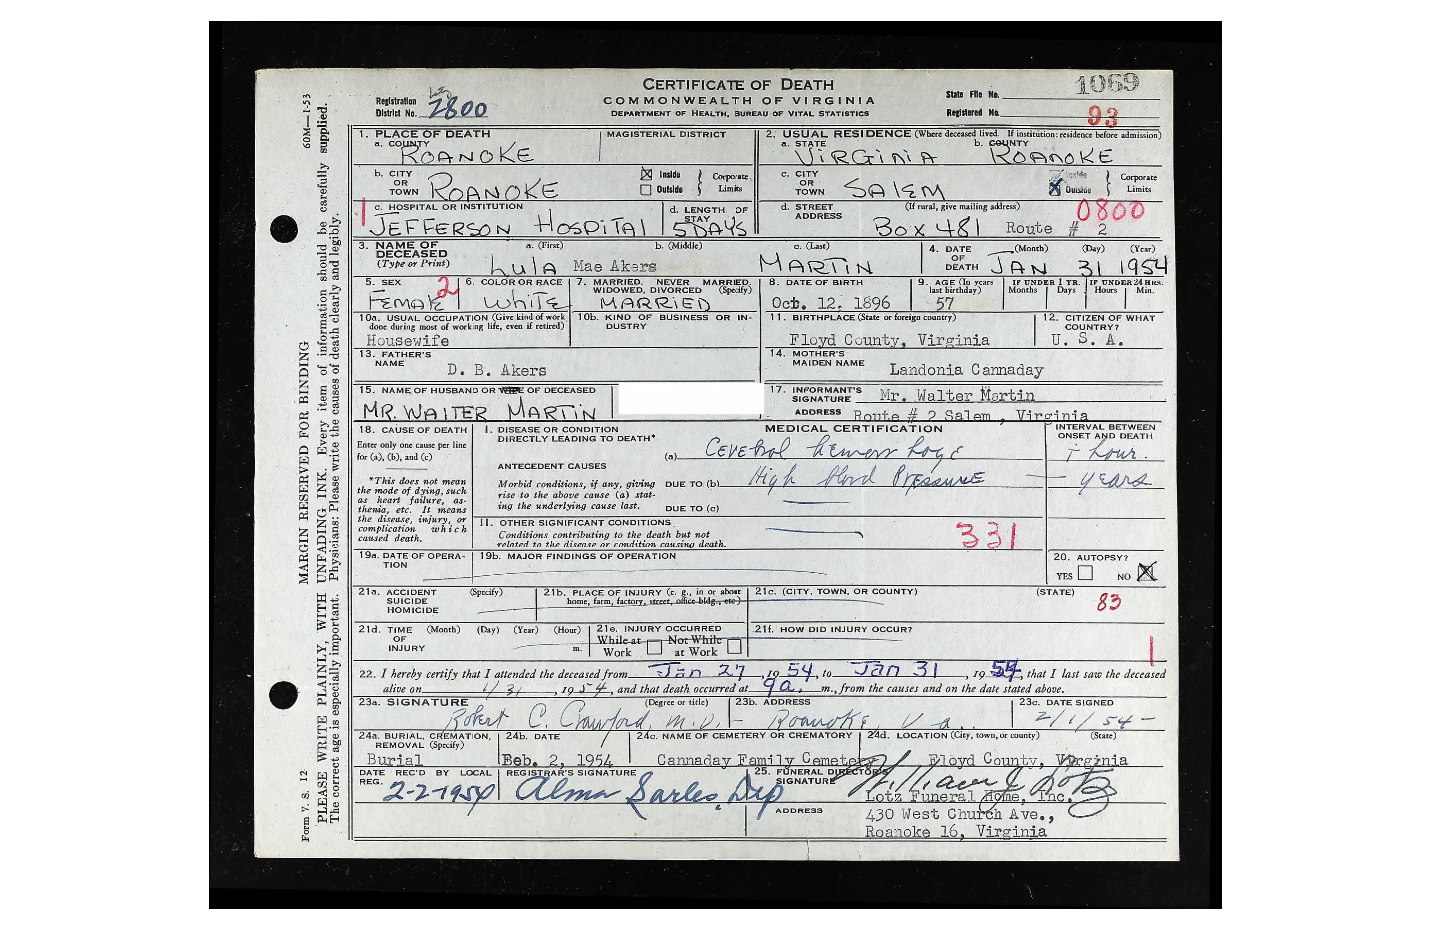 CERTIFICATE OF DEATH
COMMONWEALTH OF VIRGINIA
DEPARTMENT OF HEALTH, BUREAU OF VITAL STATISTICS
Registration District No. 2800
State File No. 1069
Registered No. 93
60M—1-53
MARGIN RESERVED FOR BINDING
PLEASE WRITE PLAINLY, WITH UNFADING INK. Every item of information should be carefully supplied.
The correct age is especially important. Physicians: Please write the causes of death clearly and legibly.
Form V. S. 12
1. PLACE OF DEATH
a. COUNTY ROANOKE
MAGISTERIAL DISTRICT
2. USUAL RESIDENCE (Where deceased lived. If institution: residence before admission)
a. STATE VIRGINIA b. COUNTY ROANOKE
b. CITY OR TOWN ROANOKE
Inside Outside Corporate Limits
c. CITY OR TOWN SALEM
Inside Outside Corporate Limits
c. HOSPITAL OR INSTITUTION JEFFERSON HOSPITAL
d. LENGTH OF STAY 5 DAYS
d. STREET ADDRESS (If rural, give mailing address) BOX 481 Route # 2
0800
3. NAME OF DECEASED (Type or Print)
a. (First) LULA b. (Middle) Mae Akers c. (Last) MARTIN
4. DATE OF DEATH (Month) (Day) (Year) JAN 31 1954
5. SEX FEMALE 2
6. COLOR OR RACE WHITE
7. MARRIED, NEVER MARRIED, WIDOWED, DIVORCED (Specify) MARRIED
8. DATE OF BIRTH Oct. 12, 1896
9. AGE (In years last birthday) 57
IF UNDER 1 YR. Months Days
IF UNDER 24 HRS. Hours Min.
10a. USUAL OCCUPATION (Give kind of work done during most of working life, even if retired) Housewife
10b. KIND OF BUSINESS OR INDUSTRY
11. BIRTHPLACE (State or foreign country) Floyd County, Virginia
12. CITIZEN OF WHAT COUNTRY? U. S. A.
13. FATHER'S NAME D. B. Akers
14. MOTHER'S MAIDEN NAME Landonia Cannaday
15. NAME OF HUSBAND OR WIFE OF DECEASED MR. WALTER MARTIN
17. INFORMANT'S SIGNATURE Mr. Walter Martin
ADDRESS Route # 2 Salem , Virginia
18. CAUSE OF DEATH
Enter only one cause per line for (a), (b), and (c)
*This does not mean the mode of dying, such as heart failure, asthenia, etc. It means the disease, injury, or complication which caused death.
MEDICAL CERTIFICATION
INTERVAL BETWEEN ONSET AND DEATH
I. DISEASE OR CONDITION DIRECTLY LEADING TO DEATH* (a) Cerebral hemorrhage 1 hour.
ANTECEDENT CAUSES
Morbid conditions, if any, giving rise to the above cause (a) stating the underlying cause last.
DUE TO (b) High blood Pressure — years
DUE TO (c)
II. OTHER SIGNIFICANT CONDITIONS
Conditions contributing to the death but not related to the disease or condition causing death.
331
19a. DATE OF OPERATION
19b. MAJOR FINDINGS OF OPERATION
20. AUTOPSY? YES NO
21a. ACCIDENT SUICIDE HOMICIDE (Specify)
21b. PLACE OF INJURY (e. g., in or about home, farm, factory, street, office bldg., etc)
21c. (CITY, TOWN, OR COUNTY) (STATE)
83
21d. TIME OF INJURY (Month) (Day) (Year) (Hour) m.
21e. INJURY OCCURRED While at Work Not While at Work
21f. HOW DID INJURY OCCUR?
1
22. I hereby certify that I attended the deceased from Jan 27, 1954, to Jan 31, 1954, that I last saw the deceased
alive on 1/31, 1954, and that death occurred at 9 a. m., from the causes and on the date stated above.
23a. SIGNATURE (Degree or title) Robert C. Crawford, M.D.
23b. ADDRESS Roanoke, Va.
23c. DATE SIGNED 2/1/54
24a. BURIAL, CREMATION, REMOVAL (Specify) Burial
24b. DATE Beb. 2, 1954
24c. NAME OF CEMETERY OR CREMATORY Cannaday Family Cemetery
24d. LOCATION (City, town, or county) (State) Floyd County, Virginia
DATE REC'D BY LOCAL REG. 2-2-1954
REGISTRAR'S SIGNATURE Alma Sarles, Dep
25. FUNERAL DIRECTOR'S SIGNATURE William J Lotz
Lotz Funeral Home, Inc.
ADDRESS 430 West Church Ave.,
Roanoke 16, Virginia